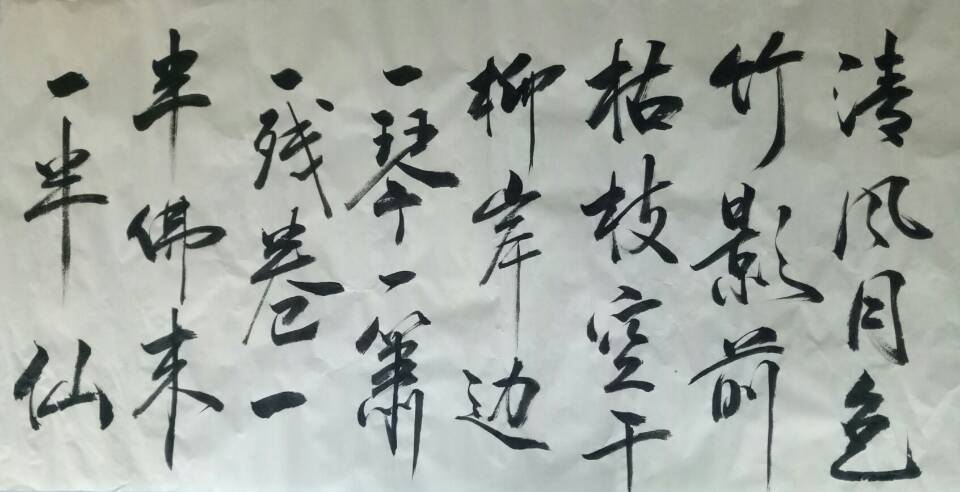 清风月色
竹影前
枯枝空干
柳岸边
一琴一箫
一残卷一
半佛来
一半仙